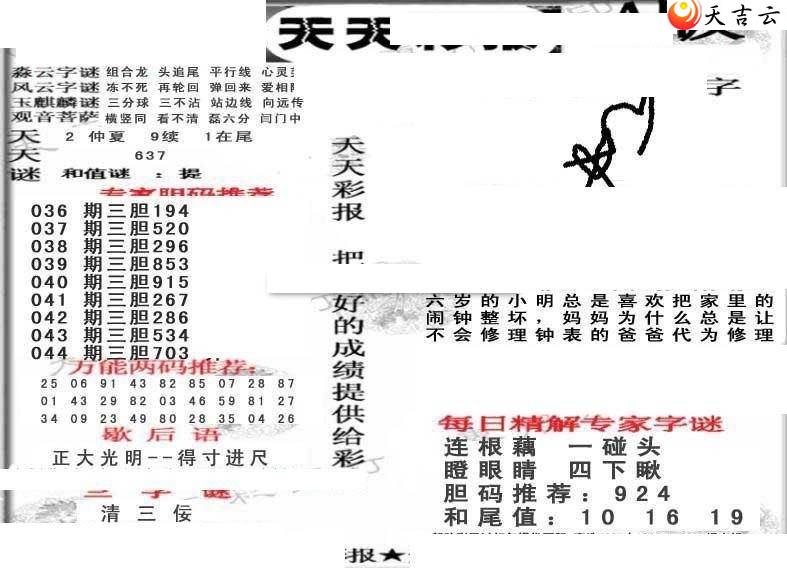 天吉云
天天彩报
字
森云字谜 组合龙 头追尾 平行线
风云字谜 冻不死 再轮回 弹回来
玉麒麟谜 三分球 三不沾 站边线
观音菩萨 横竖同 看不清 磊六分
天 2 仲夏 9续 1在尾
天 637
谜 和值谜 : 提
专家胆码推荐
036 期三胆194
037 期三胆520
038 期三胆296
039 期三胆853
040 期三胆915
041 期三胆267
042 期三胆286
043 期三胆534
044 期三胆703
万能两码推荐:
25 06 91 43 82 85 07 28 87
01 43 29 82 03 46 59 81 27
34 09 23 49 80 28 35 04 26
歇后语
正大光明--得寸进尺
三字谜
清三佞
天天彩报 把好的成绩提供给彩
报★
六岁的小明总是喜欢把家里的
闹钟整坏，妈妈为什么总是让
不会修理钟表的爸爸代为修理
每日精解专家字谜
连根藕 一碰头
瞪眼睛 四下瞅
胆码推荐: 924
和尾值: 10 16 19